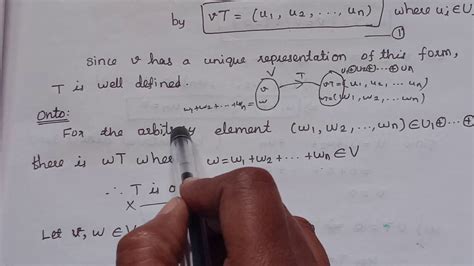 by vT = (u₁, u₂, ..., uₙ) where uᵢ∈U
①
Since v has a unique representation of this form,
T is well defined.
V T U₁⊕U₂⊕...⊕Uₙ
v vT=(u₁, u₂, ... uₙ)
w₁+w₂+...+wₙ= w wT=(w₁, w₂, ... wₙ)
Onto:
For the arbitrary element (w₁, w₂, ..., wₙ)∈U₁⊕...
there is wT where w=w₁+w₂+...+wₙ∈V
∴ T is o
X
Let v, w ∈